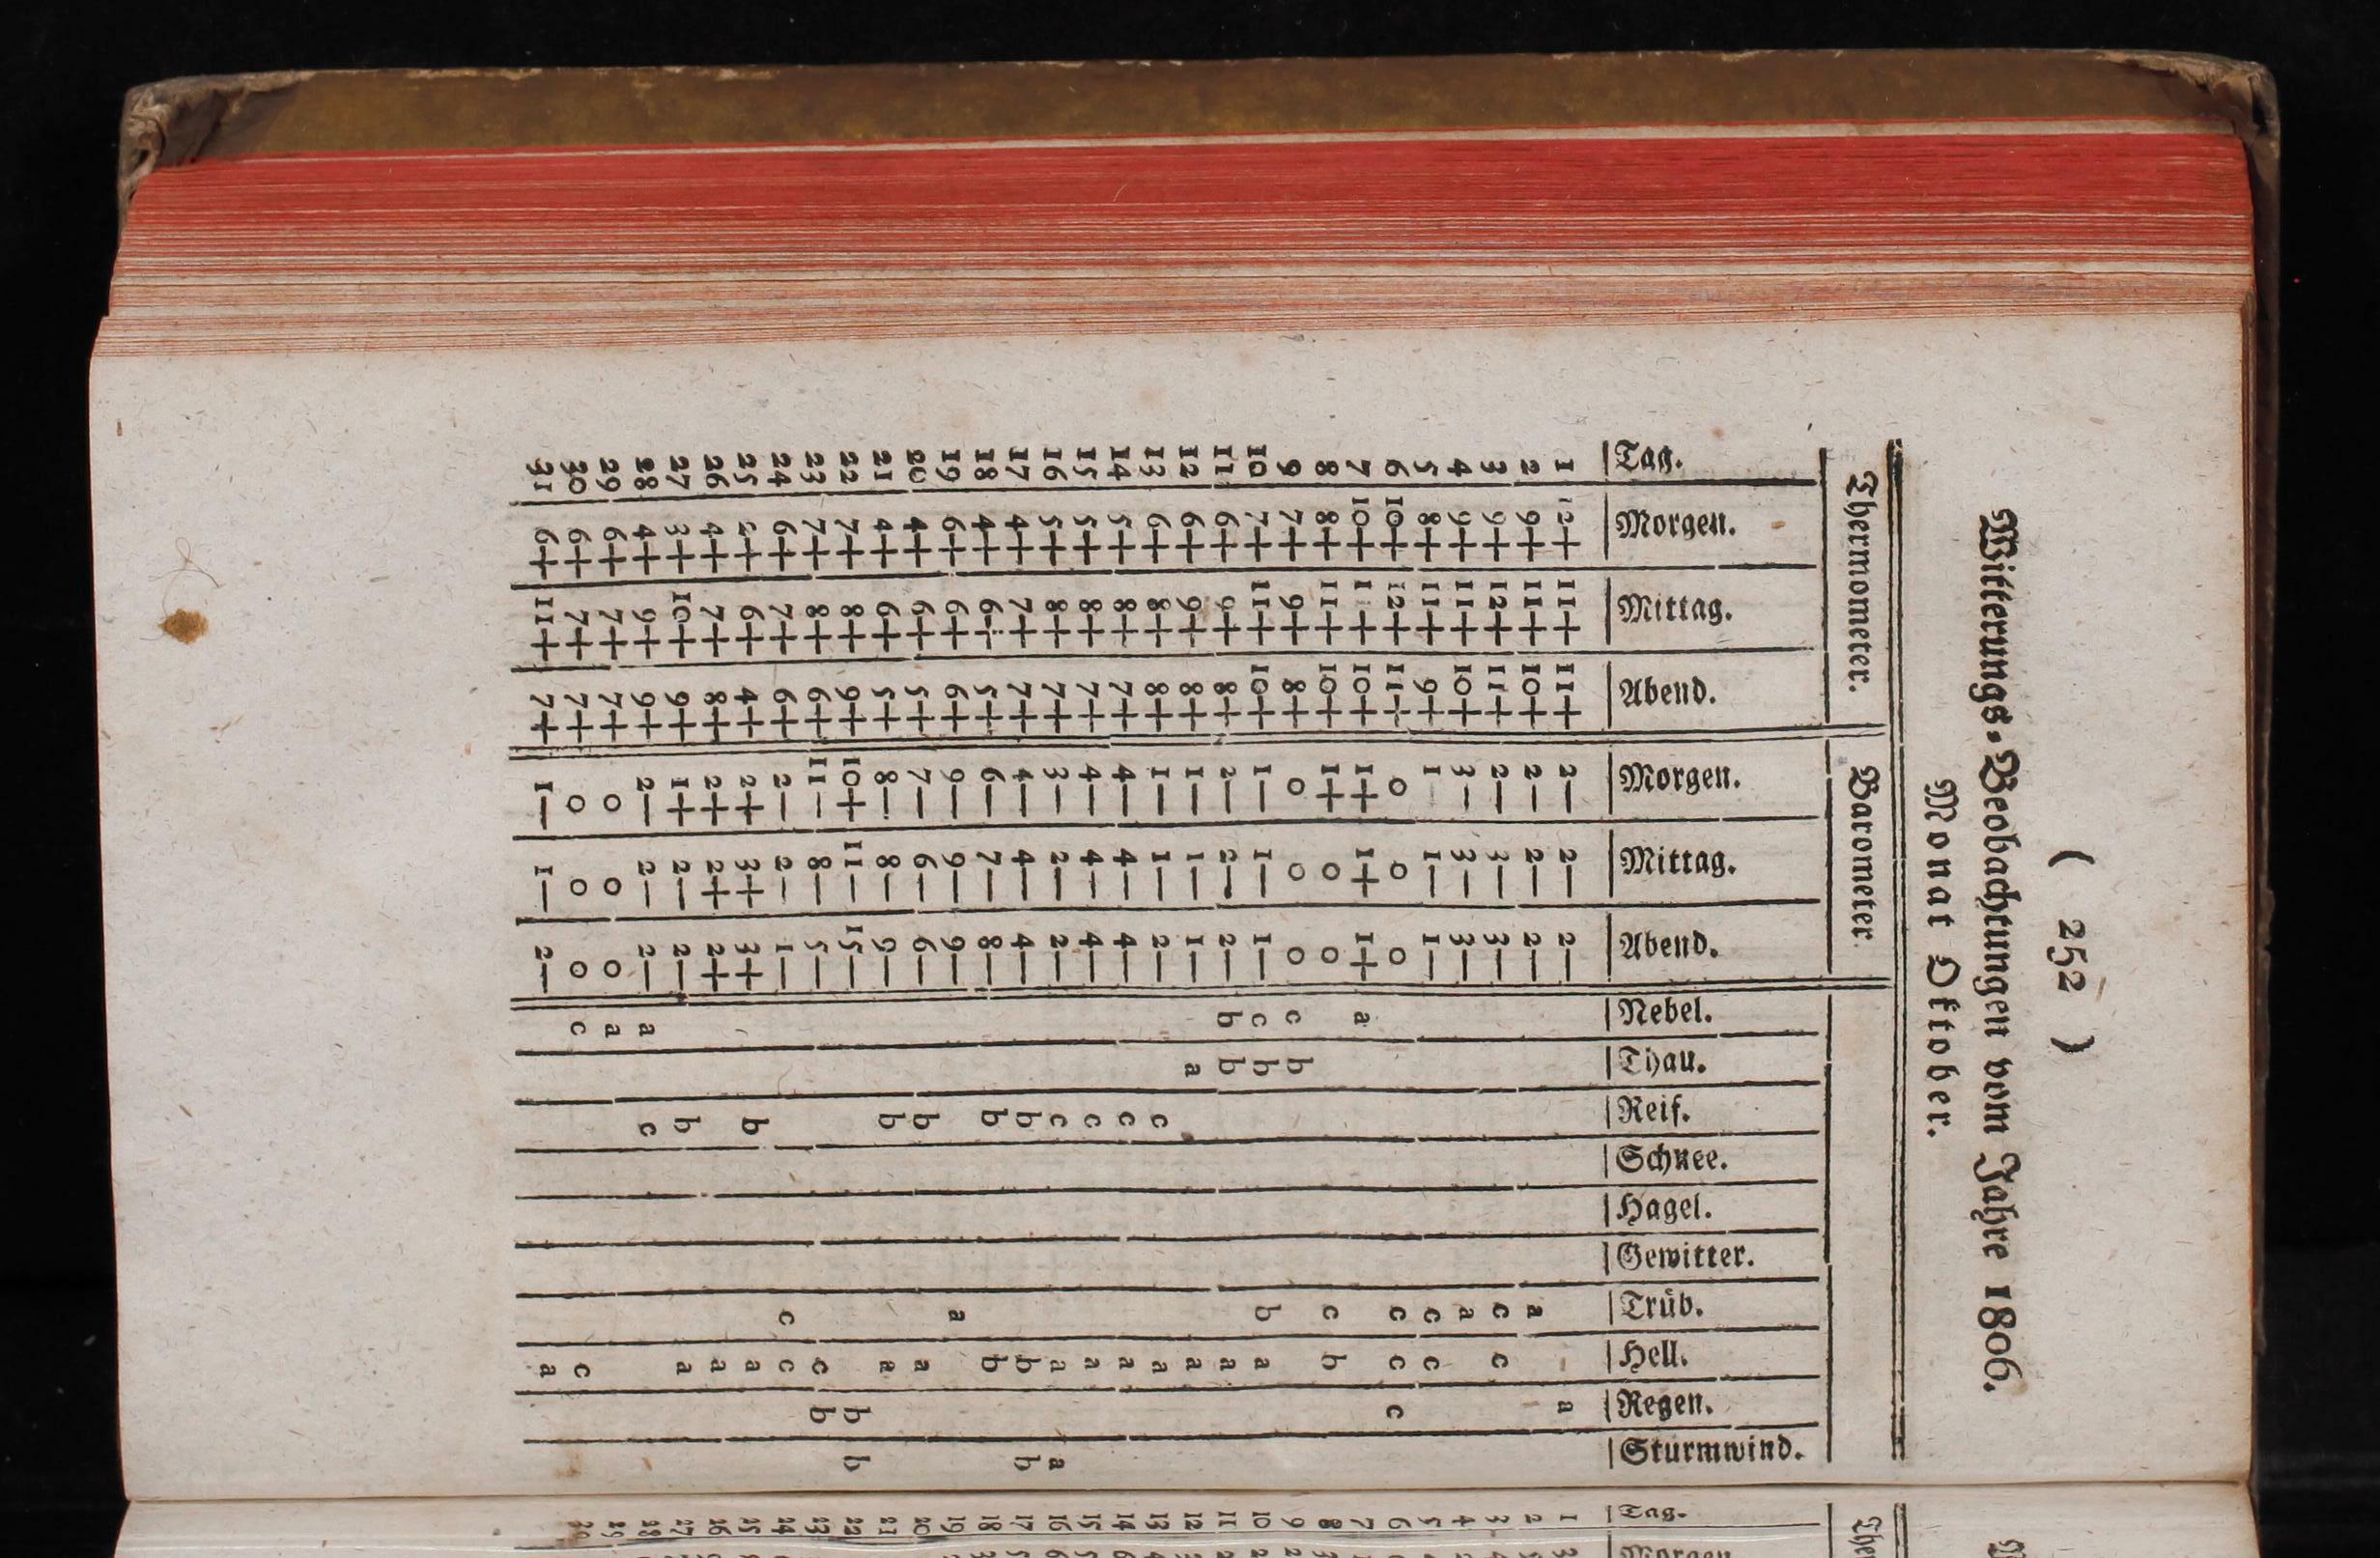 ( 252 )
Witterungs-Beobachtungen vom Jahre 1806.
Monat Oktober.
Thermometer. Barometer.
Tag. Morgen. Mittag. Abend. Morgen. Mittag. Abend. Nebel. Thau. Reif. Schnee. Hagel. Gewitter. Trüb. Hell. Regen. Sturmwind.
1 12+ 11+ 11+ 2— 2— 2— a
2 9+ 11+ 10+ 2— 2— 2— a
3 9+ 12+ 11+ 2— 3— 3— c c
4 9+ 11+ 10+ 3— 3— 3— a
5 8+ 11+ 9+ 1 1— 1— c c
6 10+ 12+ 11+ 0 0 0 c c c
7 10+ + 10+ 1+ 1+ 1+ a
8 8+ 11+ 10+ 1+ 0 0 c b
9 7+ 9+ 8+ 0 0 0 c b
10 7+ 11+ 10+ 1— 1— 1— c b b a
11 6+ 9+ 8+ 2— 2— 2— b b a
12 6+ 9+ 8+ 1— 1— 1— a a
13 6+ 8+ 8+ 1— 1— 2— c a
14 5+ 8+ 7+ 4— 4— 4— c a
15 5+ 8+ 7+ 4— 4— 4— c a
16 5+ 8+ 7+ 3— 2— 2— c a a
17 4+ 7+ 7+ 4— 4— 4— b b b
18 4+ 6+ 5+ 6— 7— 8— b b
19 6+ 6+ 6+ 9— 9— 9— a
20 4+ 6+ 5+ 7— 6— 6— b a
21 4+ 6+ 5+ 8— 8— 9— b a
22 7+ 8+ 9+ 10+ 11— 15— b b
23 7+ 8+ 6+ 11— 8— 5— c b
24 6+ 7+ 6+ 2— 2— 1— c c
25 5+ 6+ 4+ 2+ 3+ 3+ b a
26 4+ 7+ 8+ 2+ 2+ 2+ a
27 3+ 10+ 9+ 1+ 2— 2— b a
28 4+ 9+ 9+ 2— 2— 2— a c
29 6+ 7+ 7+ 0 0 0 a
30 6+ 7+ 7+ 0 0 0 c c
31 6+ 11+ 7+ 1— 1— 2— a
Tag.
1 2 3 4 5 6 7 8 9 10 11 12 13 14 15 16 17 18 19 20 21 22 23 24 25 26 27 28 29